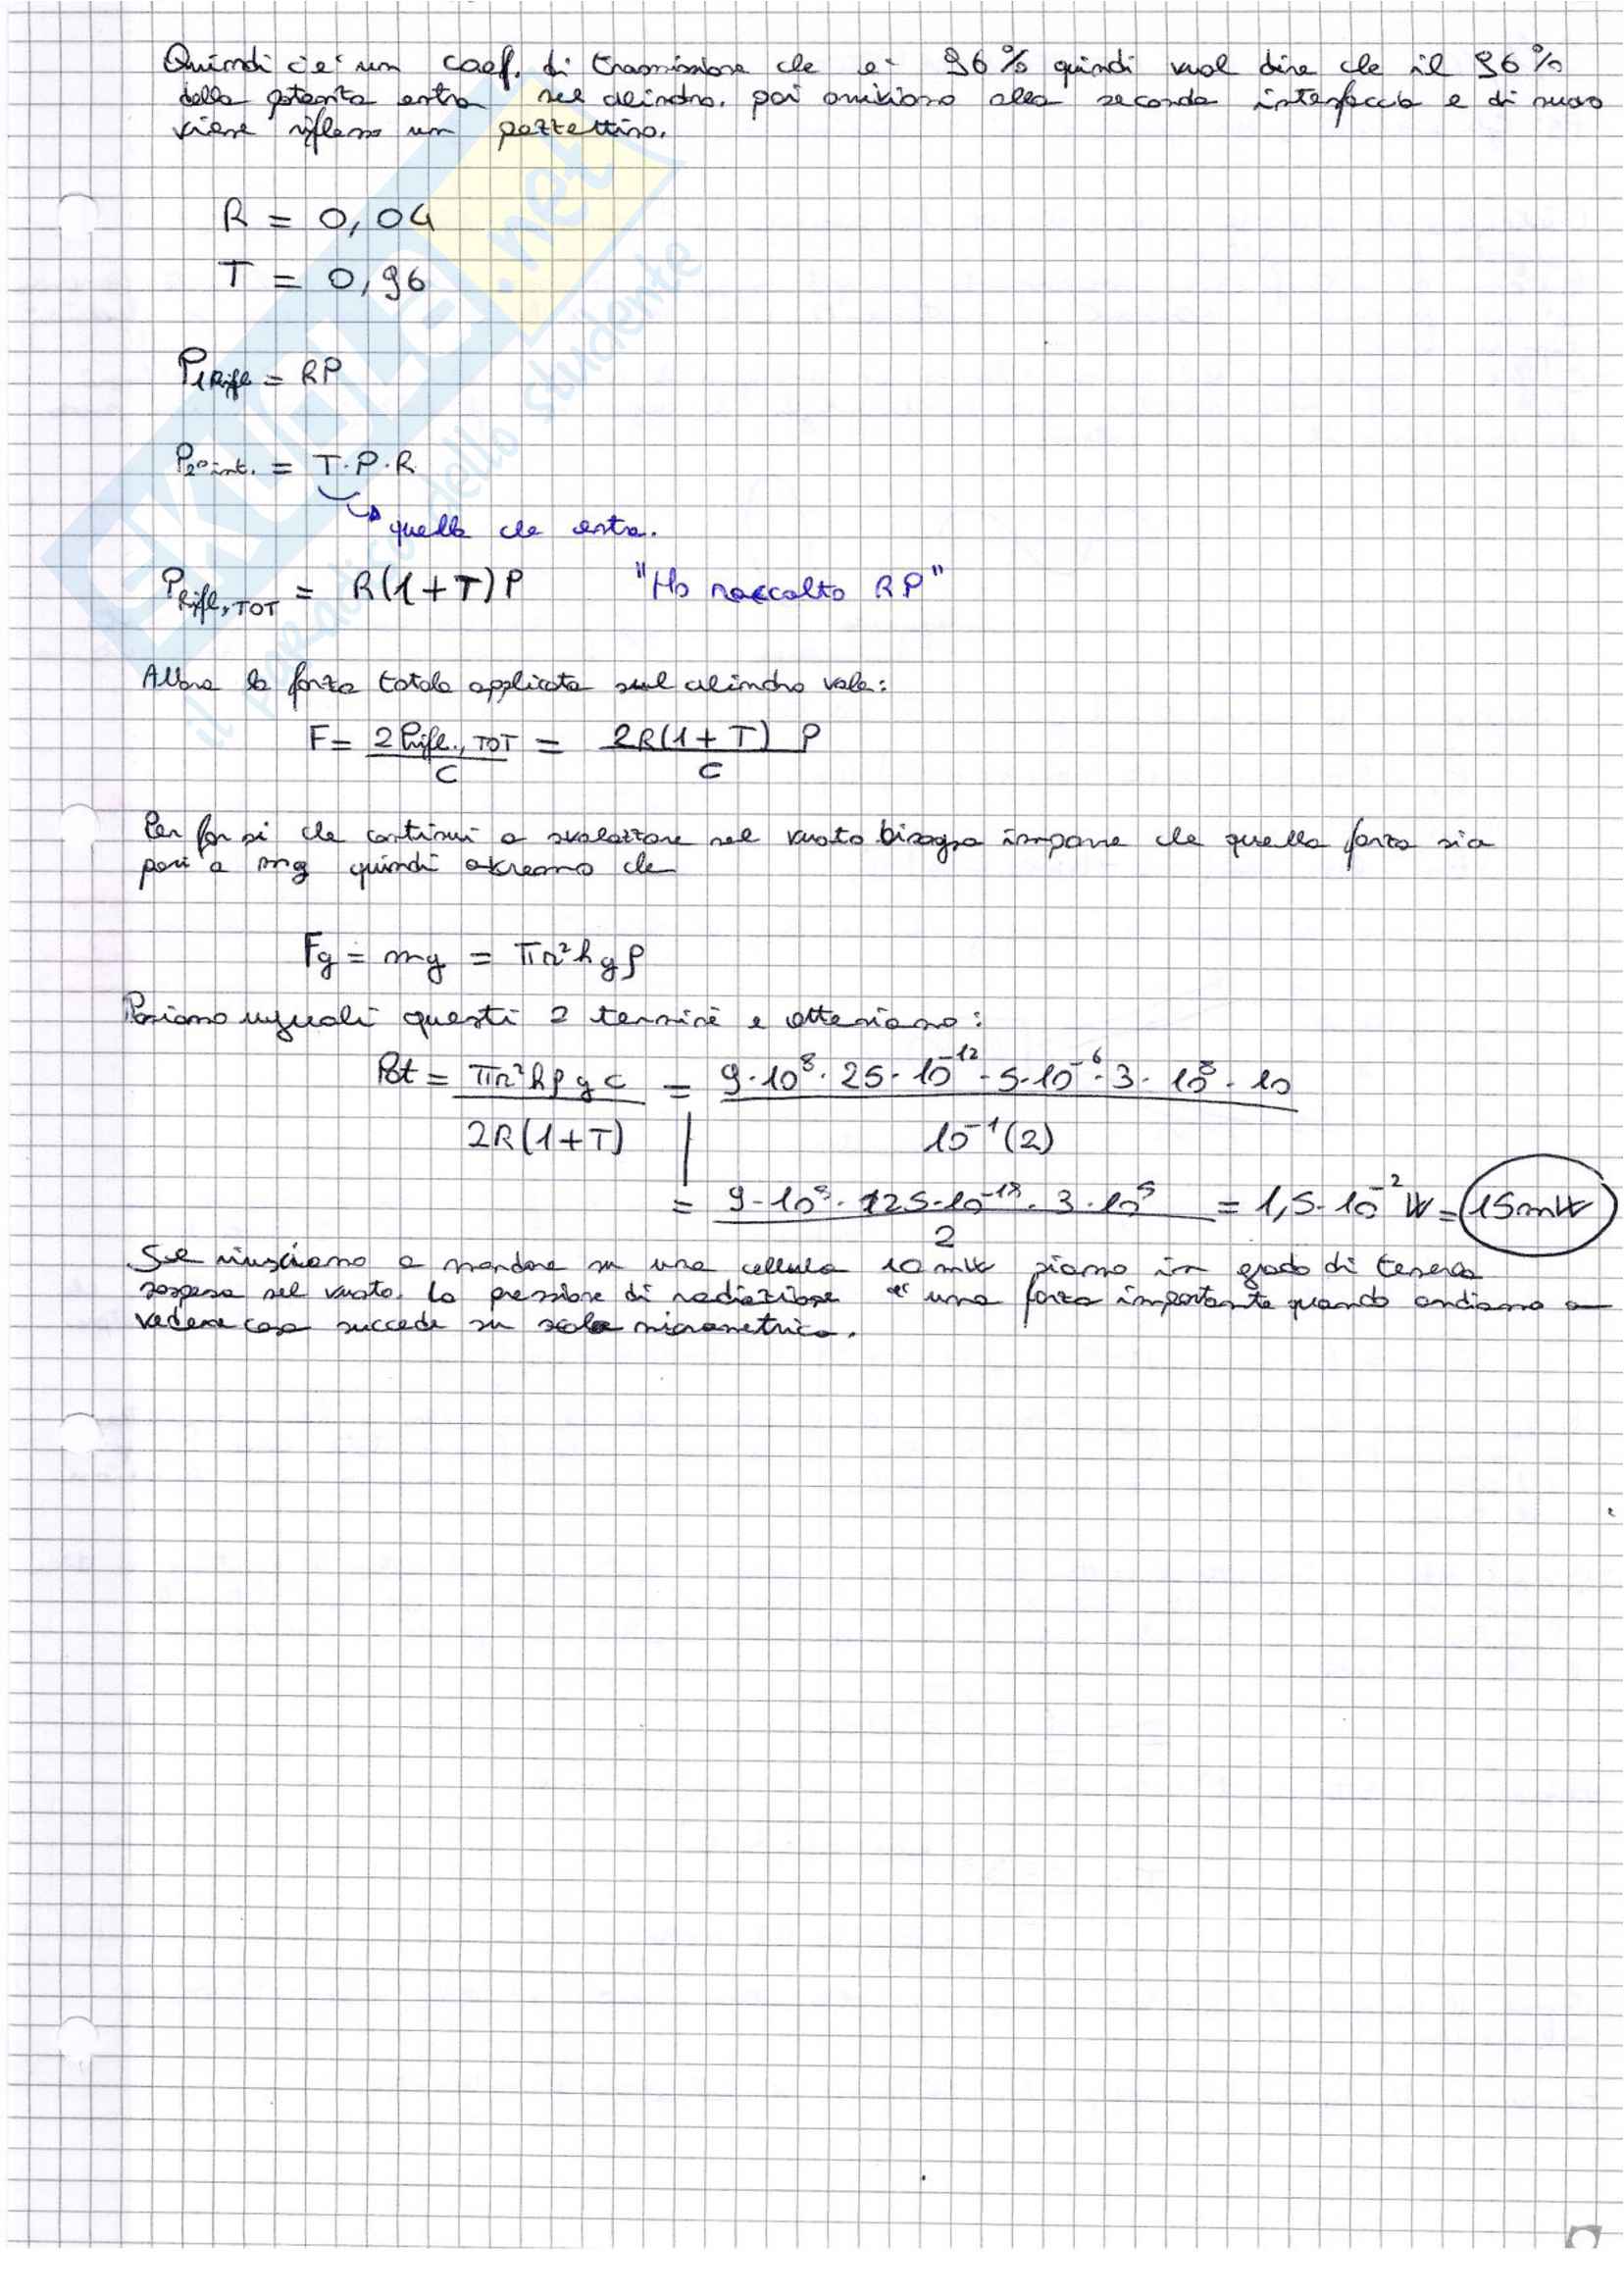 Quindi c'è un coef. di trasmissione che è 96% quindi vuol dire che il 96%
della potenza entra nel cilindro. poi arriviamo alla seconda interfaccia e di nuovo
viene riflesso un pezzettino.
R = 0,04
T = 0,96
P1Rifl = RP
P2°int. = T·P·R
quella che entra.
PRifl,TOT = R(1+T)P "Ho raccolto RP"
Allora la forza totale applicata sul cilindro vale:
F = 2Prifl.,TOT / C = 2R(1+T) P / C
Per far si che continui a svolazzare nel vuoto bisogna imporre che quella forza sia
pari a mg quindi avremo che
Fg = mg = πr²hgρ
Poniamo uguali questi 2 termini e otteniamo:
Pot = πr²hρgc / 2R(1+T) = 9·10⁸·25·10⁻¹²·5·10⁻⁶·3·10⁸·10 / 10⁻¹(2)
= 9·10⁸·125·10⁻¹⁸·3·10⁵ / 2 = 1,5·10⁻² W = 15mW
Se riusciamo a mandare su una cellula 10 mW siamo in grado di tenerla
sospesa nel vuoto. La pressione di radiazione è una forza importante quando andiamo a
vedere cosa succede su scala micrometrica.
SKUOLA.net
il paradiso dello studente